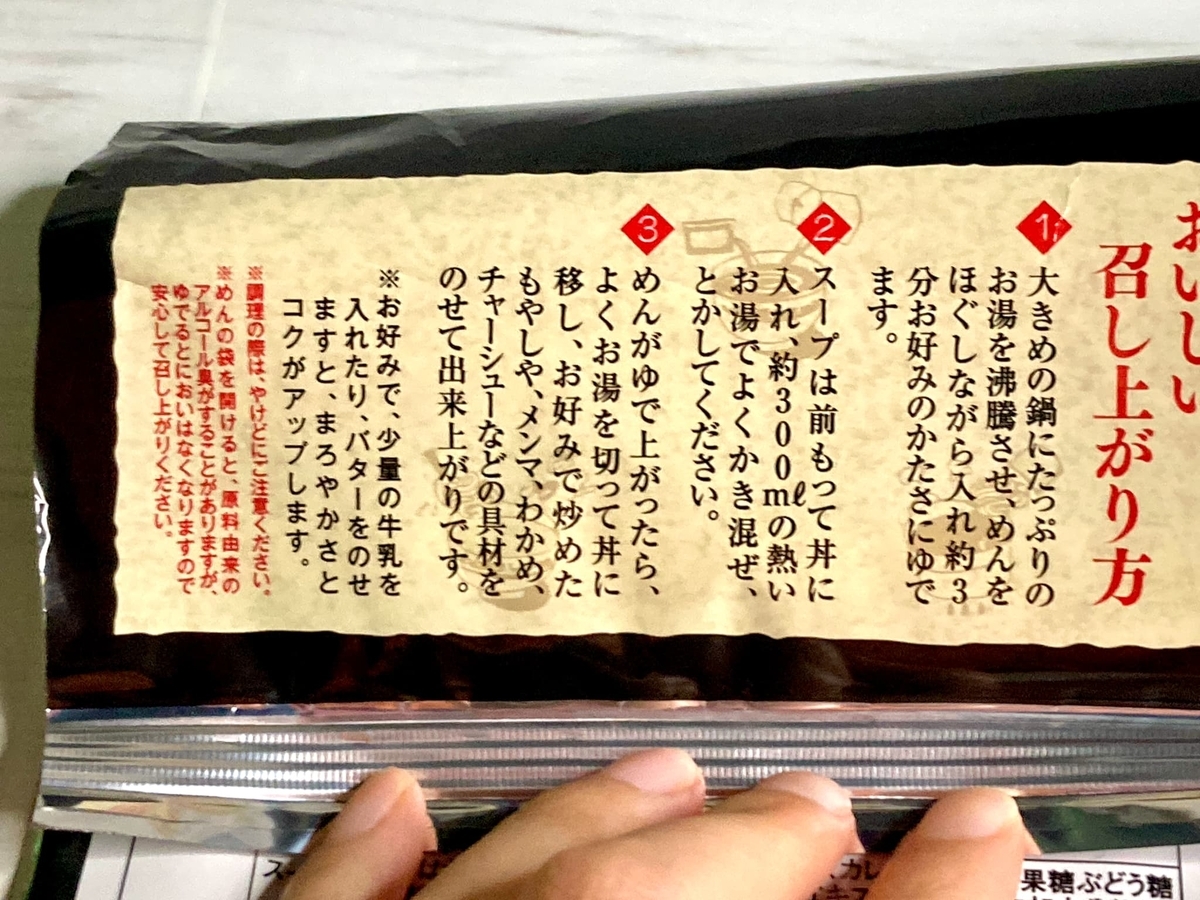 おいしい
召し上がり方
1
大きめの鍋にたっぷりの
お湯を沸騰させ、めんを
ほぐしながら入れ約3
分お好みのかたさにゆで
ます。
2
スープは前もって丼に
入れ、約300mℓの熱い
お湯でよくかき混ぜ、
とかしてください。
3
めんがゆで上がったら、
よくお湯を切って丼に
移し、お好みで炒めた
もやしや、メンマ、わかめ、
チャーシューなどの具材を
のせて出来上がりです。
※お好みで、少量の牛乳を
入れたり、バターをのせ
ますと、まろやかさと
コクがアップします。
※調理の際は、やけどにご注意ください。
※めんの袋を開けると、原料由来の
アルコール臭がすることがありますが、
ゆでるとにおいはなくなりますので
安心して召し上がりください。
果糖ぶどう糖